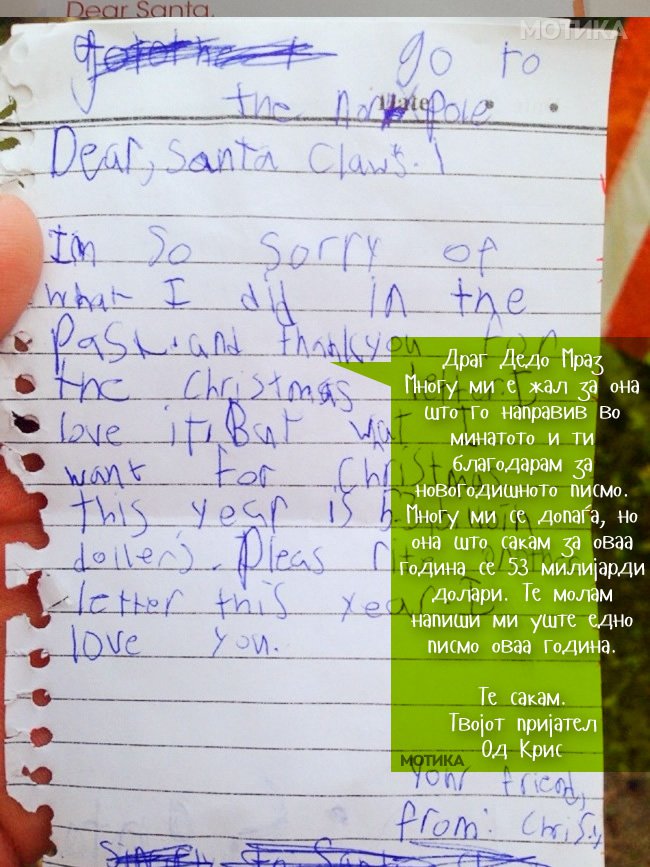 Dear Santa,
МОТИКА
go to
the nor pole
Date
Dear, Santa Claws.!
Im so sorry of
what I did in the
past. and thankyou for
the Christmas letter. I
love it, But what I
want for Christmas
this year is
doilers. Pleas rite
letter this year I
love you.
your friend,
from: Chris.y
Драг Дедо Мраз
Многу ми е жал за она
што го направив во
минатото и ти
благодарам за
новогодишното писмо.
Многу ми се допаѓа, но
она што сакам за оваа
година се 53 милијарди
долари. Те молам
напиши ми уште едно
писмо оваа година.
Те сакам.
Твојот пријател
Од Крис
МОТИКА